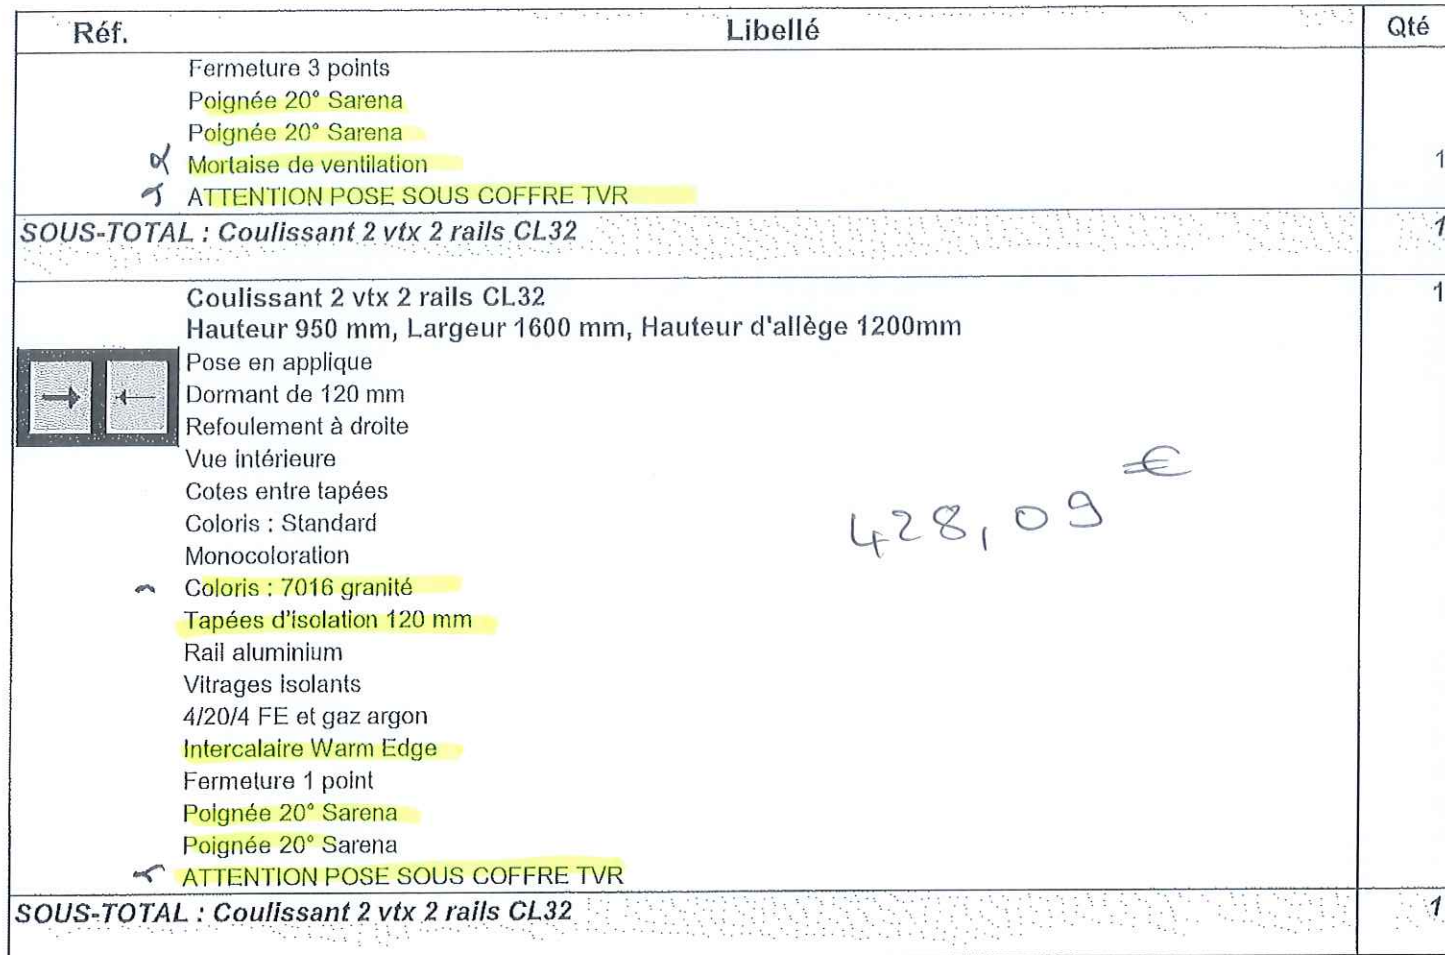 Réf. Libellé Qté
Fermeture 3 points
Poignée 20° Sarena
Poignée 20° Sarena
Mortaise de ventilation 1
ATTENTION POSE SOUS COFFRE TVR
SOUS-TOTAL : Coulissant 2 vtx 2 rails CL32 1
Coulissant 2 vtx 2 rails CL32 1
Hauteur 950 mm, Largeur 1600 mm, Hauteur d'allège 1200mm
Pose en applique
Dormant de 120 mm
Refoulement à droite
Vue intérieure
Cotes entre tapées
Coloris : Standard
428,09 €
Monocoloration
Coloris : 7016 granité
Tapées d'isolation 120 mm
Rail aluminium
Vitrages isolants
4/20/4 FE et gaz argon
Intercalaire Warm Edge
Fermeture 1 point
Poignée 20° Sarena
Poignée 20° Sarena
ATTENTION POSE SOUS COFFRE TVR
SOUS-TOTAL : Coulissant 2 vtx 2 rails CL32 1